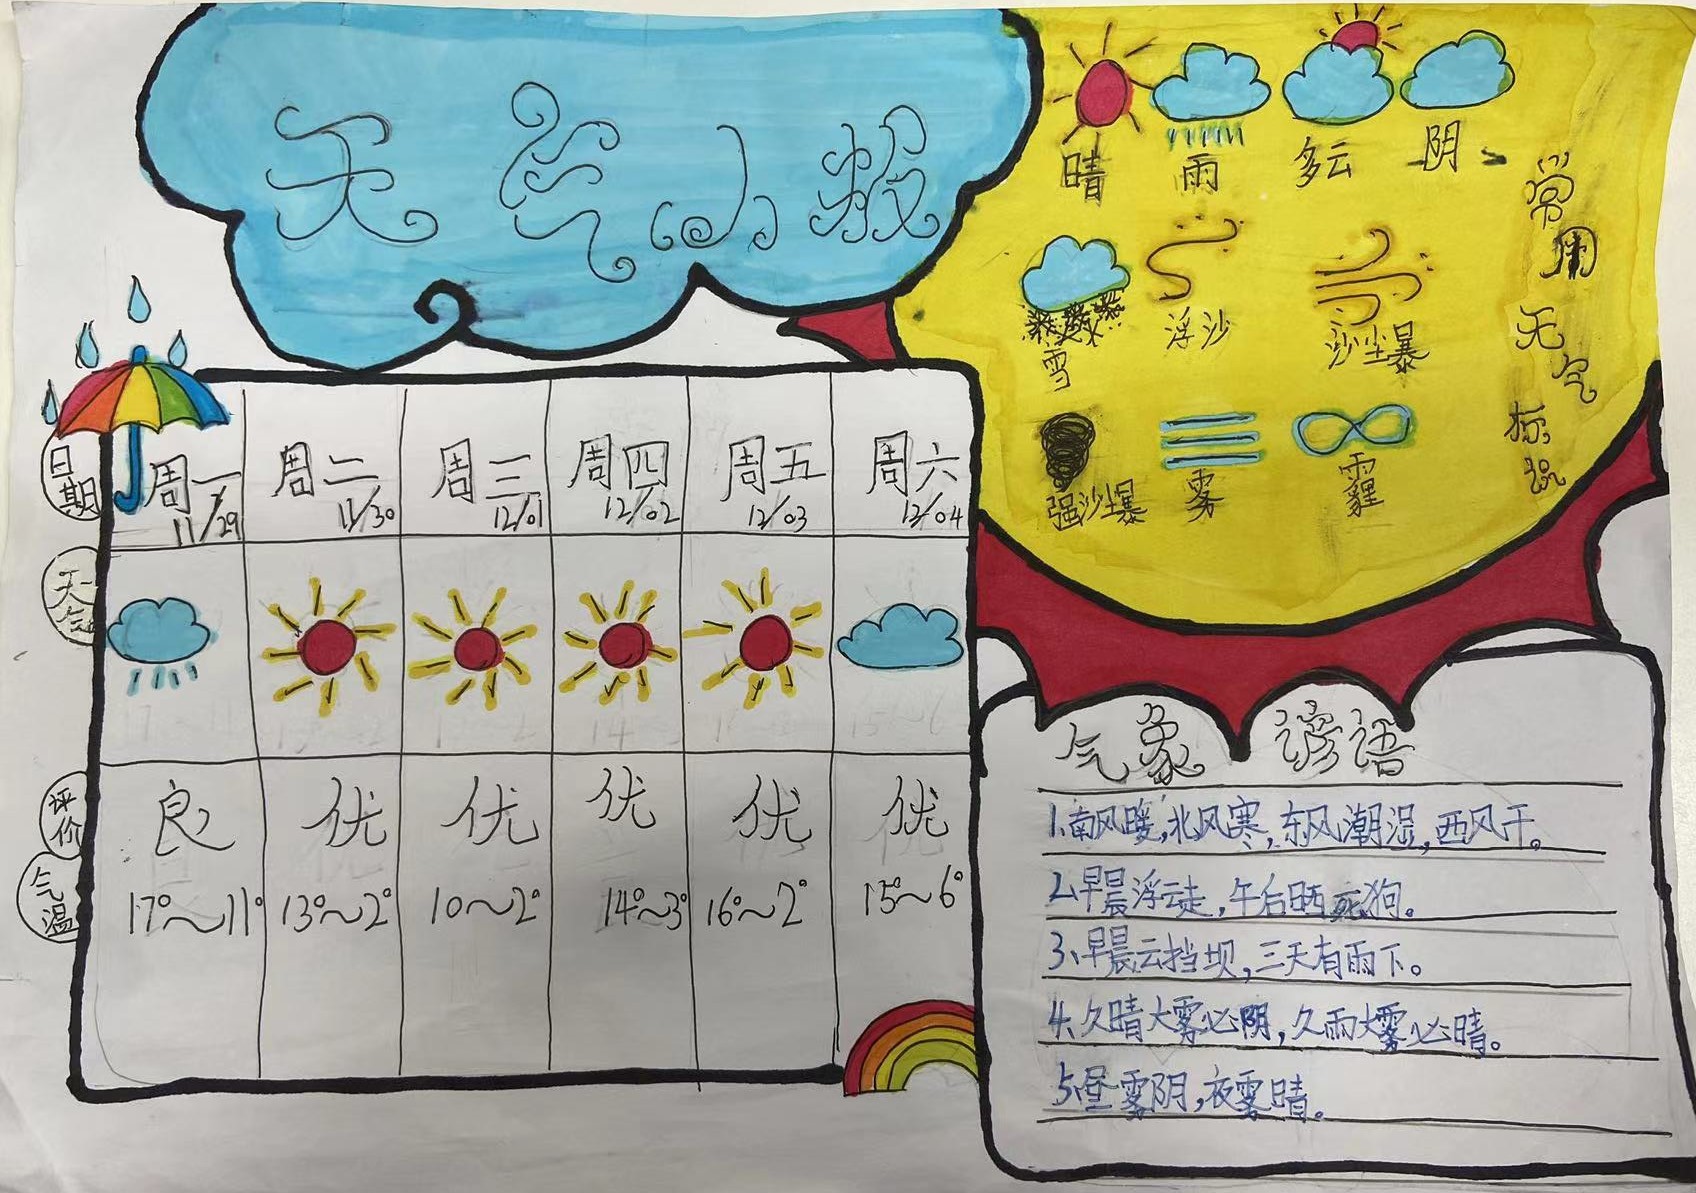 天气小报
晴 雨 多云 阴
雪 浮沙 沙尘暴
强沙尘暴 雾 霾
常用天气标识
日期 周一 周二 周三 周四 周五 周六
11/29 11/30 12/01 12/02 12/03 12/04
天气
评价 良 优 优 优 优 优
气温 17°~11° 13°~2° 10~2° 14°~3° 16°~2° 15°~6°
气象谚语
1、南风暖,北风寒,东风潮湿,西风干。
2、早晨浮云走,午后晒死狗。
3、早晨云挡坝,三天有雨下。
4、久晴大雾必阴,久雨大雾必晴。
5、昼雾阴,夜雾晴。